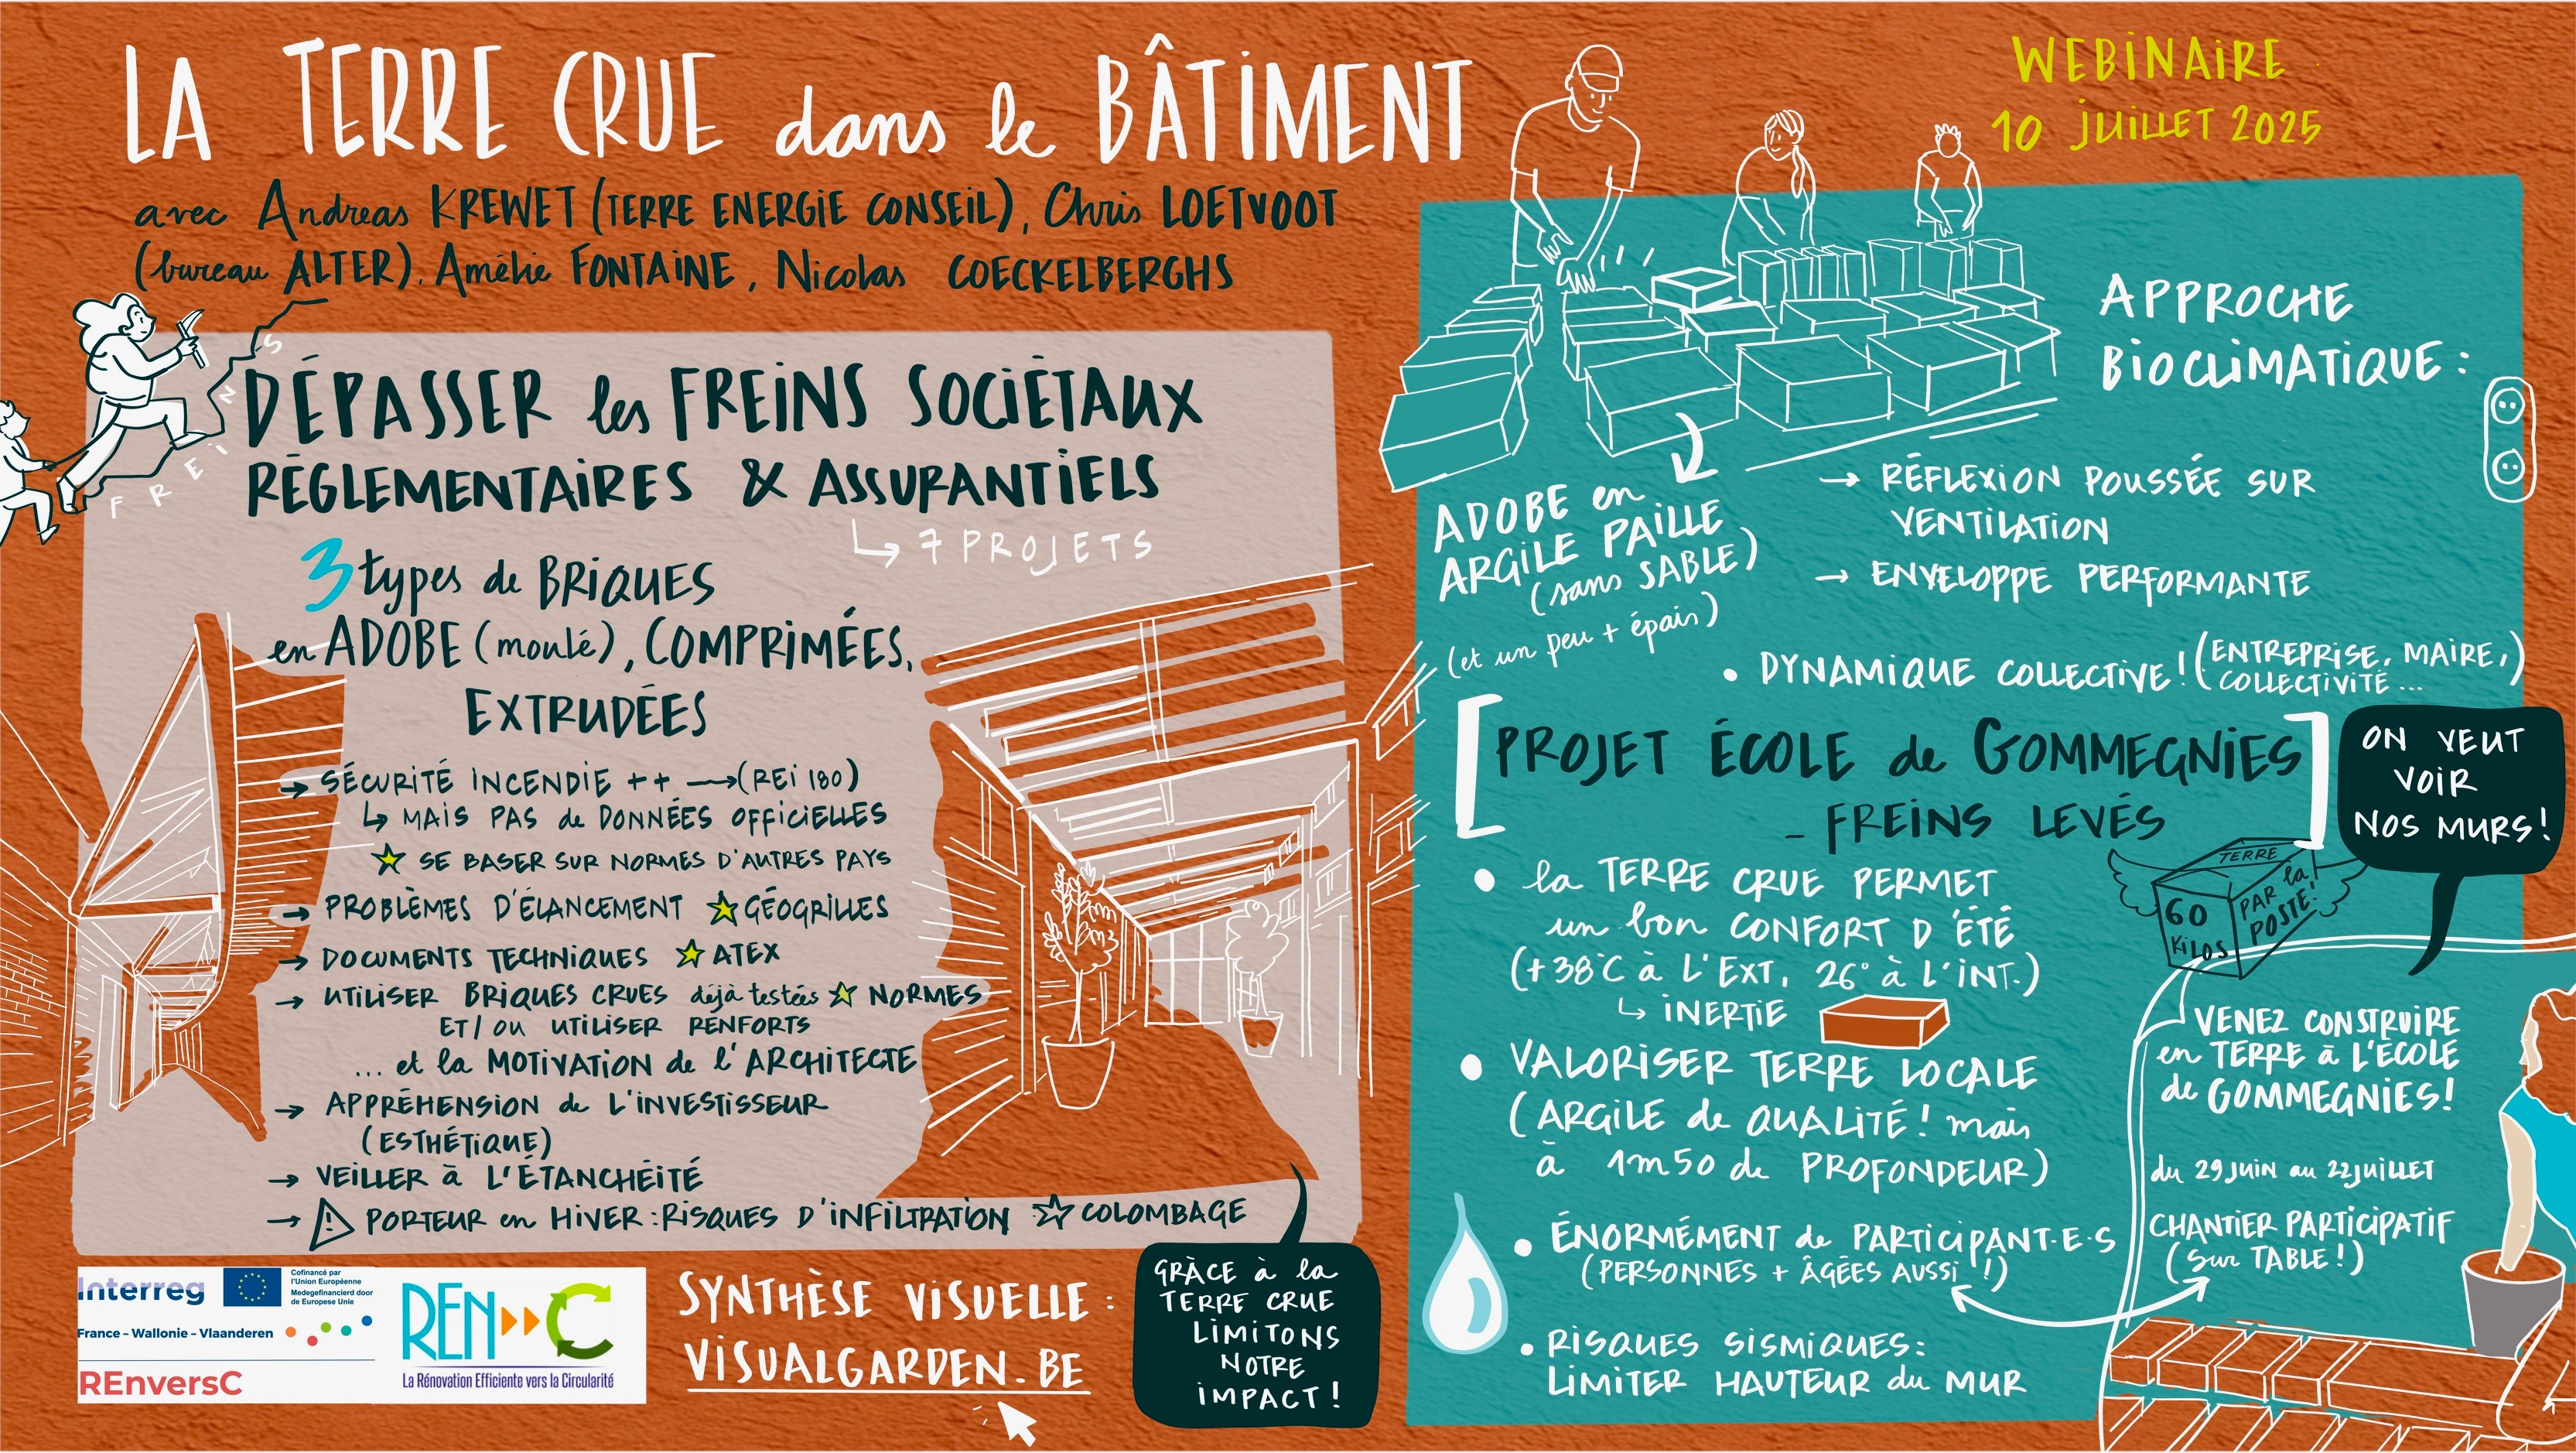 LA TERRE CRUE dans le BÂTIMENT
avec Andreas KREWET (TERRE ENERGIE CONSEIL), Chris LOETVOOT
(bureau ALTER), Amélie FONTAINE, Nicolas COECKELBERGHS
WEBINAIRE
10 JUILLET 2025
FREINS
DÉPASSER les FREINS SOCIÉTAUX
RÉGLEMENTAIRES & ASSURANTIELS
↳ 7 PROJETS
3 types de BRIQUES
en ADOBE (moulé), COMPRIMÉES,
EXTRUDÉES
→ SÉCURITÉ INCENDIE ++ → (REI 180)
↳ MAIS PAS de DONNÉES OFFICIELLES
☆ SE BASER SUR NORMES D'AUTRES PAYS
→ PROBLÈMES D'ÉLANCEMENT ☆ GÉOGRILLES
→ DOCUMENTS TECHNIQUES ☆ ATEX
→ UTILISER BRIQUES CRUES déjà testées ☆ NORMES
ET/OU UTILISER RENFORTS
... et la MOTIVATION de l'ARCHITECTE
→ APPRÉHENSION de L'INVESTISSEUR
(ESTHÉTIQUE)
→ VEILLER à L'ÉTANCHÉITÉ
→ ⚠ PORTEUR en HIVER : RISQUES D'INFILTRATION ☆ COLOMBAGE
Interreg
Cofinancé par
l'Union Européenne
Medegefinancierd door
de Europese Unie
France – Wallonie – Vlaanderen
REnversC
REN C
La Rénovation Efficiente vers la Circularité
SYNTHÈSE VISUELLE :
VISUALGARDEN.BE
GRÂCE à la
TERRE CRUE
LIMITONS
NOTRE
IMPACT !
APPROCHE
BIOCLIMATIQUE :
→ RÉFLEXION POUSSÉE SUR
VENTILATION
→ ENVELOPPE PERFORMANTE
ADOBE en
ARGILE PAILLE
(sans SABLE)
(et un peu + épais)
• DYNAMIQUE COLLECTIVE ! (ENTREPRISE, MAIRE,
COLLECTIVITÉ ...)
[PROJET ÉCOLE de GOMMEGNIES]
– FREINS LEVÉS
ON VEUT
VOIR
NOS MURS !
TERRE
60
KILOS
PAR la
POSTE !
• la TERRE CRUE PERMET
un bon CONFORT D'ÉTÉ
(+38°C à L'EXT, 26° à L'INT.)
↳ INERTIE
• VALORISER TERRE LOCALE
(ARGILE de QUALITÉ ! mais
à 1m50 de PROFONDEUR)
• ÉNORMÉMENT de PARTICIPANT·E·S
(PERSONNES + ÂGÉES AUSSI !)
• RISQUES SISMIQUES :
LIMITER HAUTEUR du MUR
VENEZ CONSTRUIRE
en TERRE à L'ÉCOLE
de GOMMEGNIES !
du 29 JUIN au 22 JUILLET
CHANTIER PARTICIPATIF
(sur TABLE !)